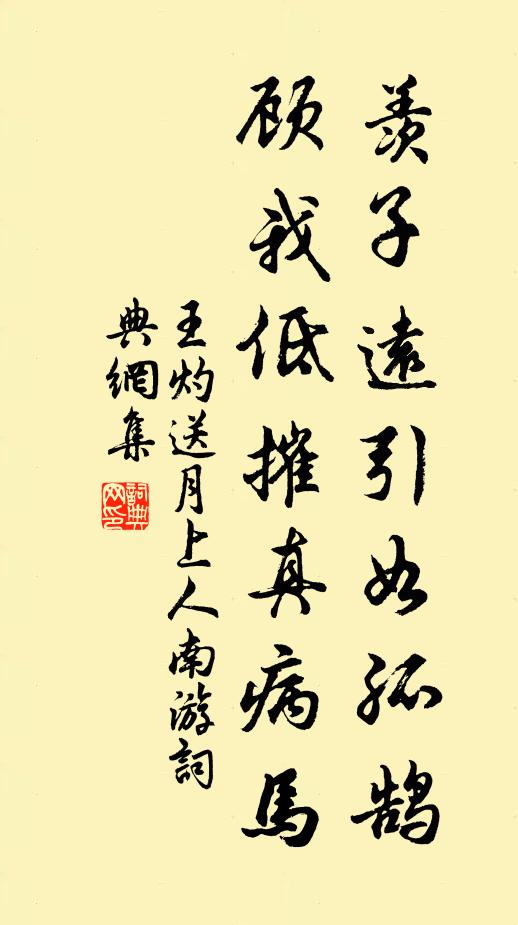 羨子遠引如孤鹄
顾我低摧真病馬
王灼送月上人南游詞
典網集
詞典网印